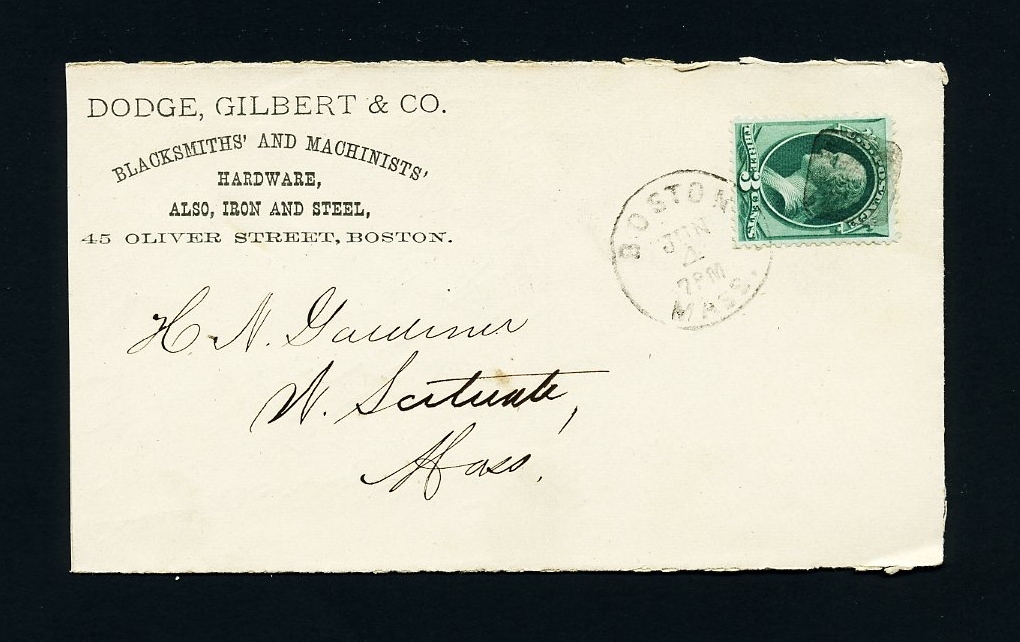 DODGE, GILBERT & CO.
BLACKSMITHS' AND MACHINISTS'
HARDWARE,
ALSO, IRON AND STEEL,
45 OLIVER STREET, BOSTON.
THREE 3 CENTS
U.S. POSTAGE
BOSTON
JUN
4
2 PM
MASS.
H. N. Gardiner
W. Scituate,
Mass.